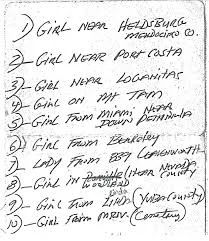 1) GIRL NEAR HELDSBURG
MENDOCINO CO.
2) GIRL NEAR PORT COSTA
3) GIRL NEAR LOGANITAS
4) GIRL ON MT TAM
5) GIRL FROM MIAMI NEAR
DOWN PENINSULA
6) GIRL FROM BERKELEY
7) LADY FROM
8) GIRL IN (NEAR NEVADA
WOODLAND COUNTY
9) GIRL FROM LINDA (YUBA COUNTY)
10) GIRL FROM (CEMETERY)